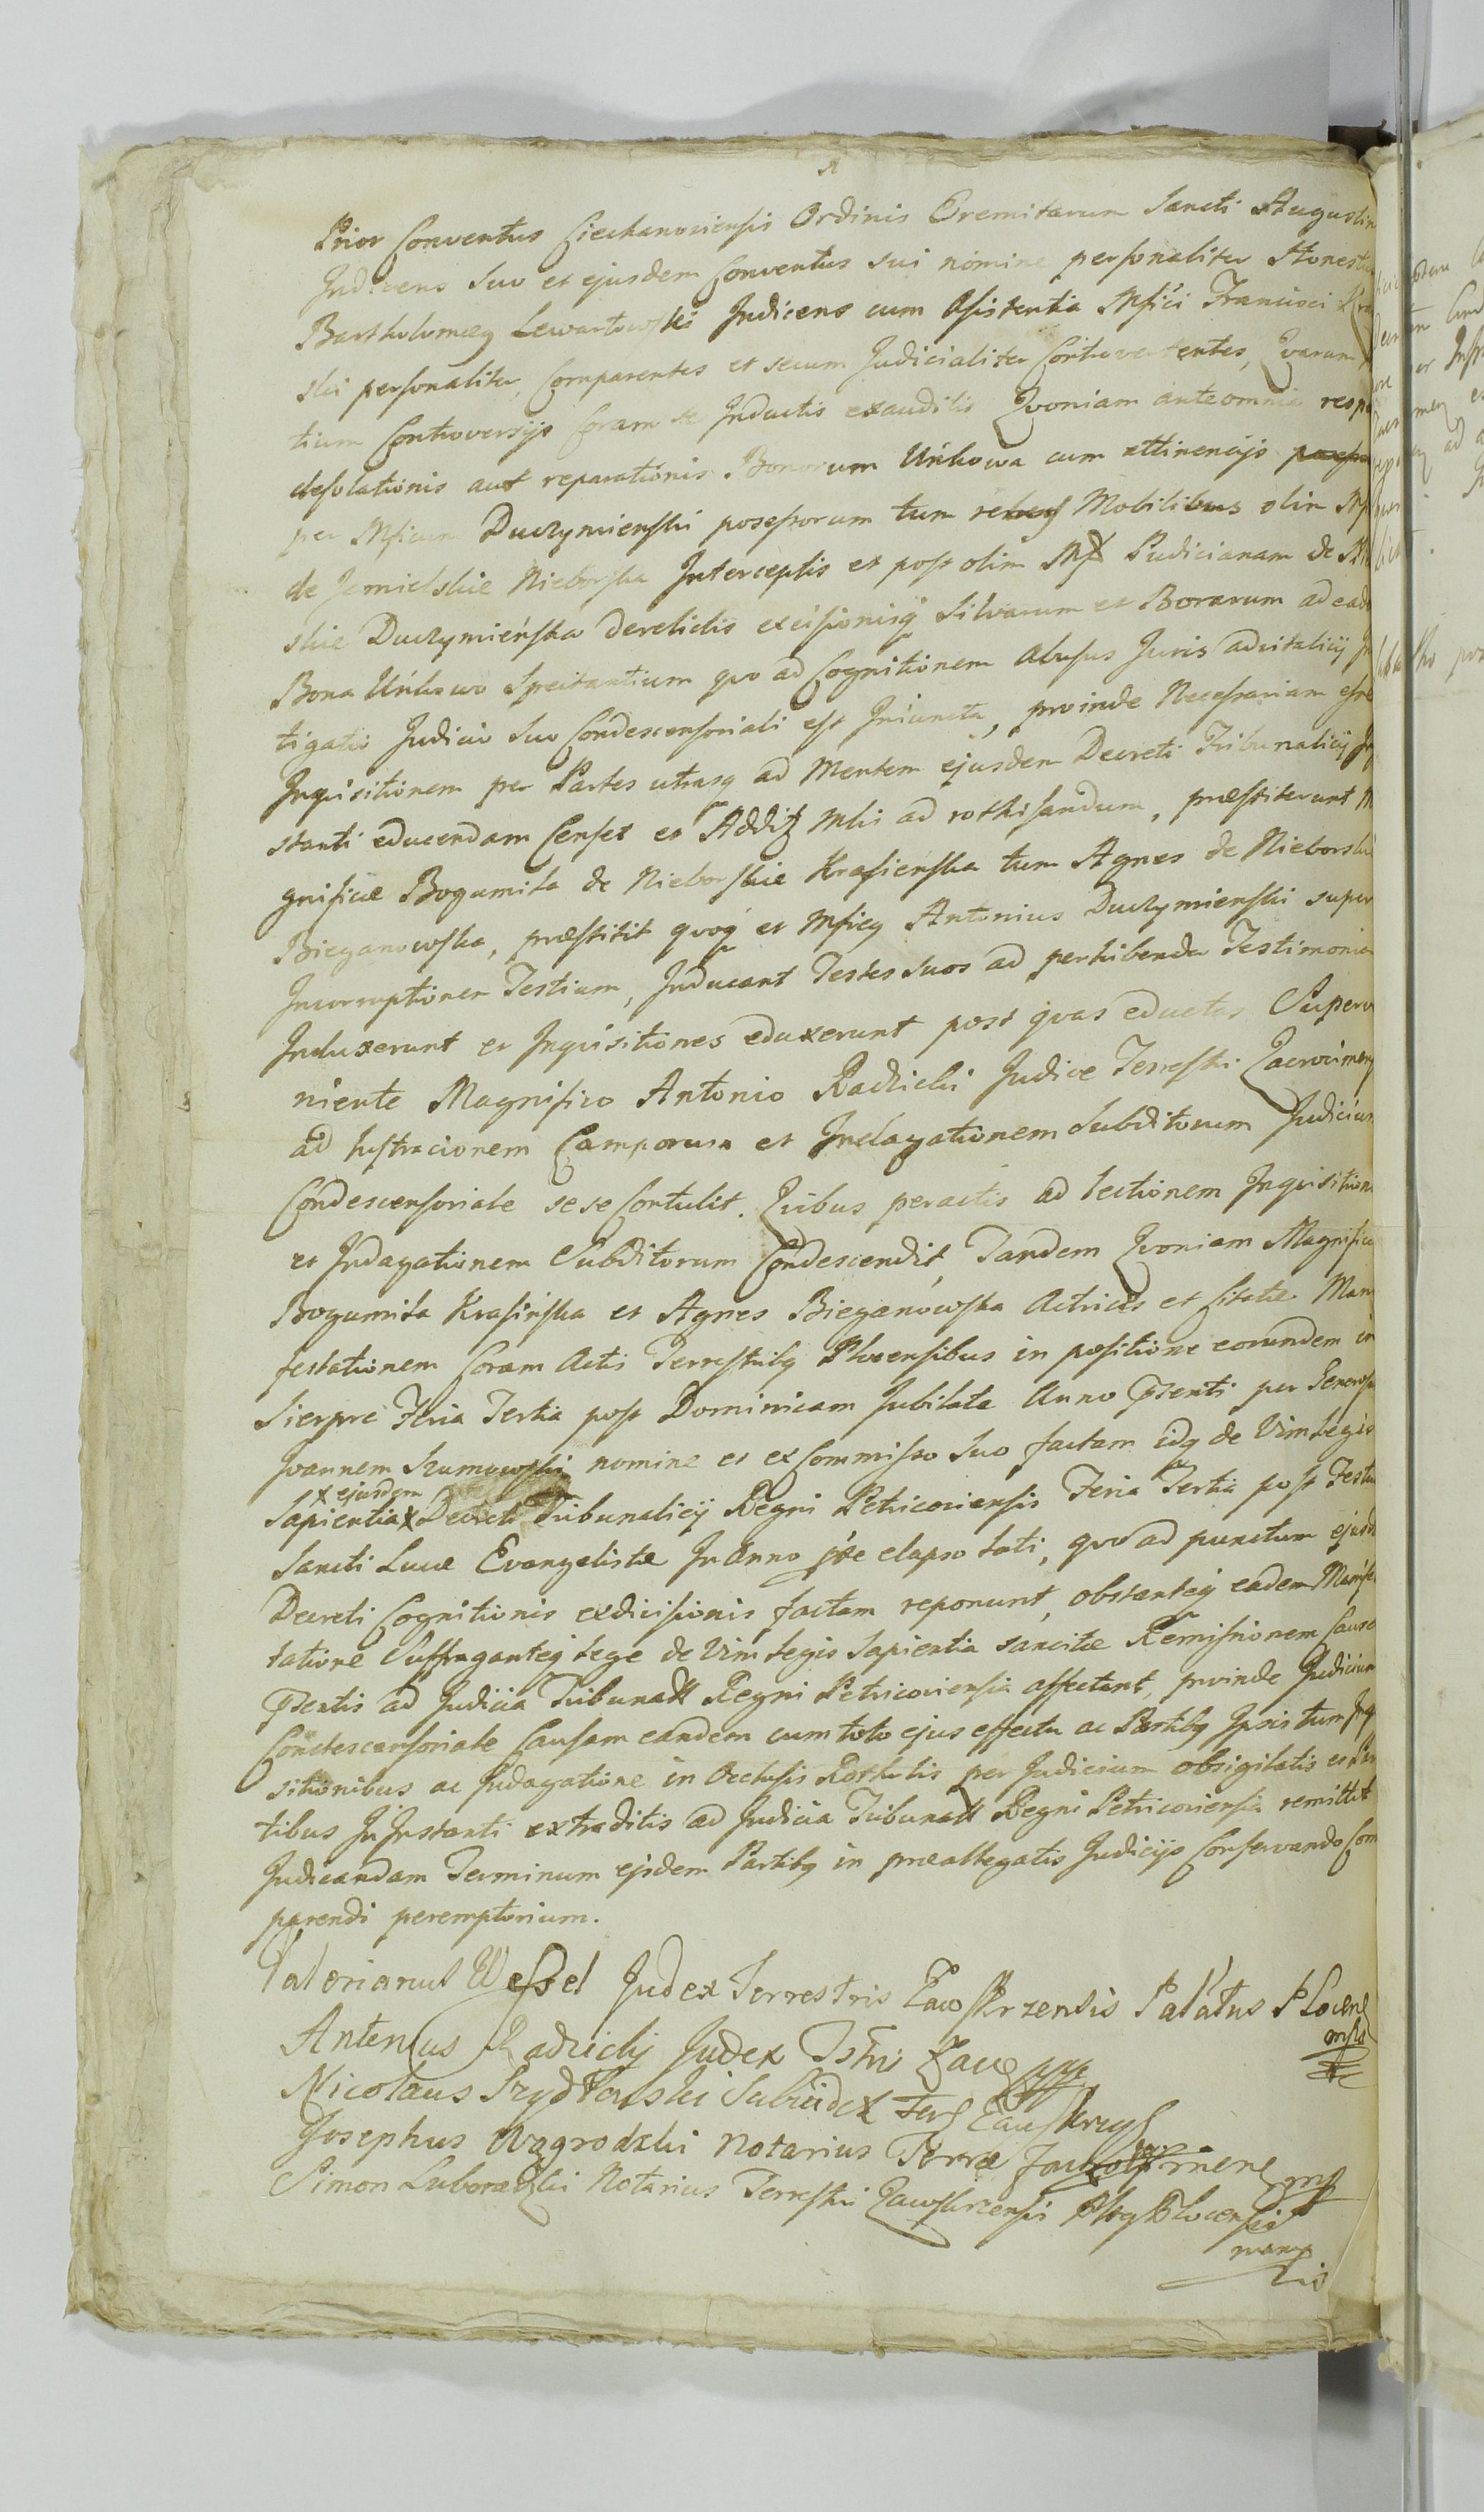 Prior Conventus Ciechanoviensis Ordinis Eremitarum Sancti Augustin
Inducens Suo et ejusdem Conventus sui nomine personaliter Honestus
Bartholomeq Lewartowski Judicens cum Assistentia Mfici Francisci
ski personaliter Comparentes et secum Judicialiter Controvertentes, Quarum
tium Controversijs Coram se Inductis exauditis Quoniam ante omnia resp
desolationis aut reparationis Bonorum Unkowa cum attinencijs
per Mficum Duczymienski possessorum tum rebus Mobilibus olim
de Jemielskie Nieborska Interceptis et post olim Pudicianam de
skie Duczymieńska derelictis excisionisq Silvarum et Borarum ad ead
Bona Unkowo Spectantium quo ad Cognitionem Abusus Juris advitalicij
tigatio Judicio Suo Condescensoriali est Iniuncta, proinde Necessariam esse
Inquisitionem per Partes utrasq ad Mentem ejusdem Decreti Tribunalicij
stanti educendam Censet et Addit Mtri ad rothisandum, præstiterunt M
gnificæ Bogumiła de Nieborskie Krasienska tum Agnes de Nieborski
Bieganowska, præstitit quoq et Mficq Antonius Duczymienski super
Incorruptionem Testium, Inducant Testes Suos ad perhibenda Testimonia
Induxerunt et Inquisitiones eduxerunt post quas eductas Superve
niente Magnifico Antonio Radzicki Judice Terrestri Zacrocimen
ad lustracionem Camporum et Indagationem Subditorum Judicium
Condescensoriale sese Contulit. Quibus peractis ad lectionem Inquisition
et Indagationem Subditorum Condescendit, Tandem Quoniam Magnificæ
Bogumiła Krasińska et Agnes Bieganowska Actrices et Citatæ Mani
festationem Coram Actis Terrestribq Plocensibus in positione eorundem in
Sierpce Feria Tertia post Dominicam Jubilate Anno Psenti per Generosu
Joannem Szumowski nomine et ex Commisso Suo factam idq de Vim Legis
x ejusdem
Sapientia x Decreti Tribunalicij Regni Petricoviensis Feria Tertia post Festu
Sancti Lucæ Evangelistæ In Anno elapso lati, quo ad punctum ejusd
Decreti Cognitionis exdicisionis factam reponunt, obstanteq eadem Manifes
tatione Suffraganteq lege de Vim Legis Sapientia sancitæ Remissionem Causæ
Psentis ad Judicia Tribunall Regni Petricoviensia affectant, proinde Judicium
Condescensoriale Causam eandem cum toto ejus effectu ac Partibq Ipsis tum Inq
sitionibus ac Indagatione in Occlusis Rothulis per Judicium obsigilatis et Par
tibus In Instanti extraditis ad Judicia Tribunall Regni Petricoviensia remittit
Judicandam Terminum ejsdem Partibq in præallegatis Judicijs Conservando Com
parendi peremptorium.
Valerianus Wessel Judex Terrestris Zawskrzensis Palatus Plocens
mp
Antonius Radzicky Judex Tstris Zacr
Nicolaus Szydłowski Subiudex Ters Zawskrzys
Josephus Wągrodzki Notarius Terræ mp
Simon Luboradzki Notarius Terrestri Zawskrzensis Plocensis
manu